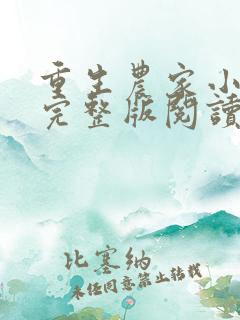 重生農家小
完整版閱讀
比塞納
未经同意禁止转载